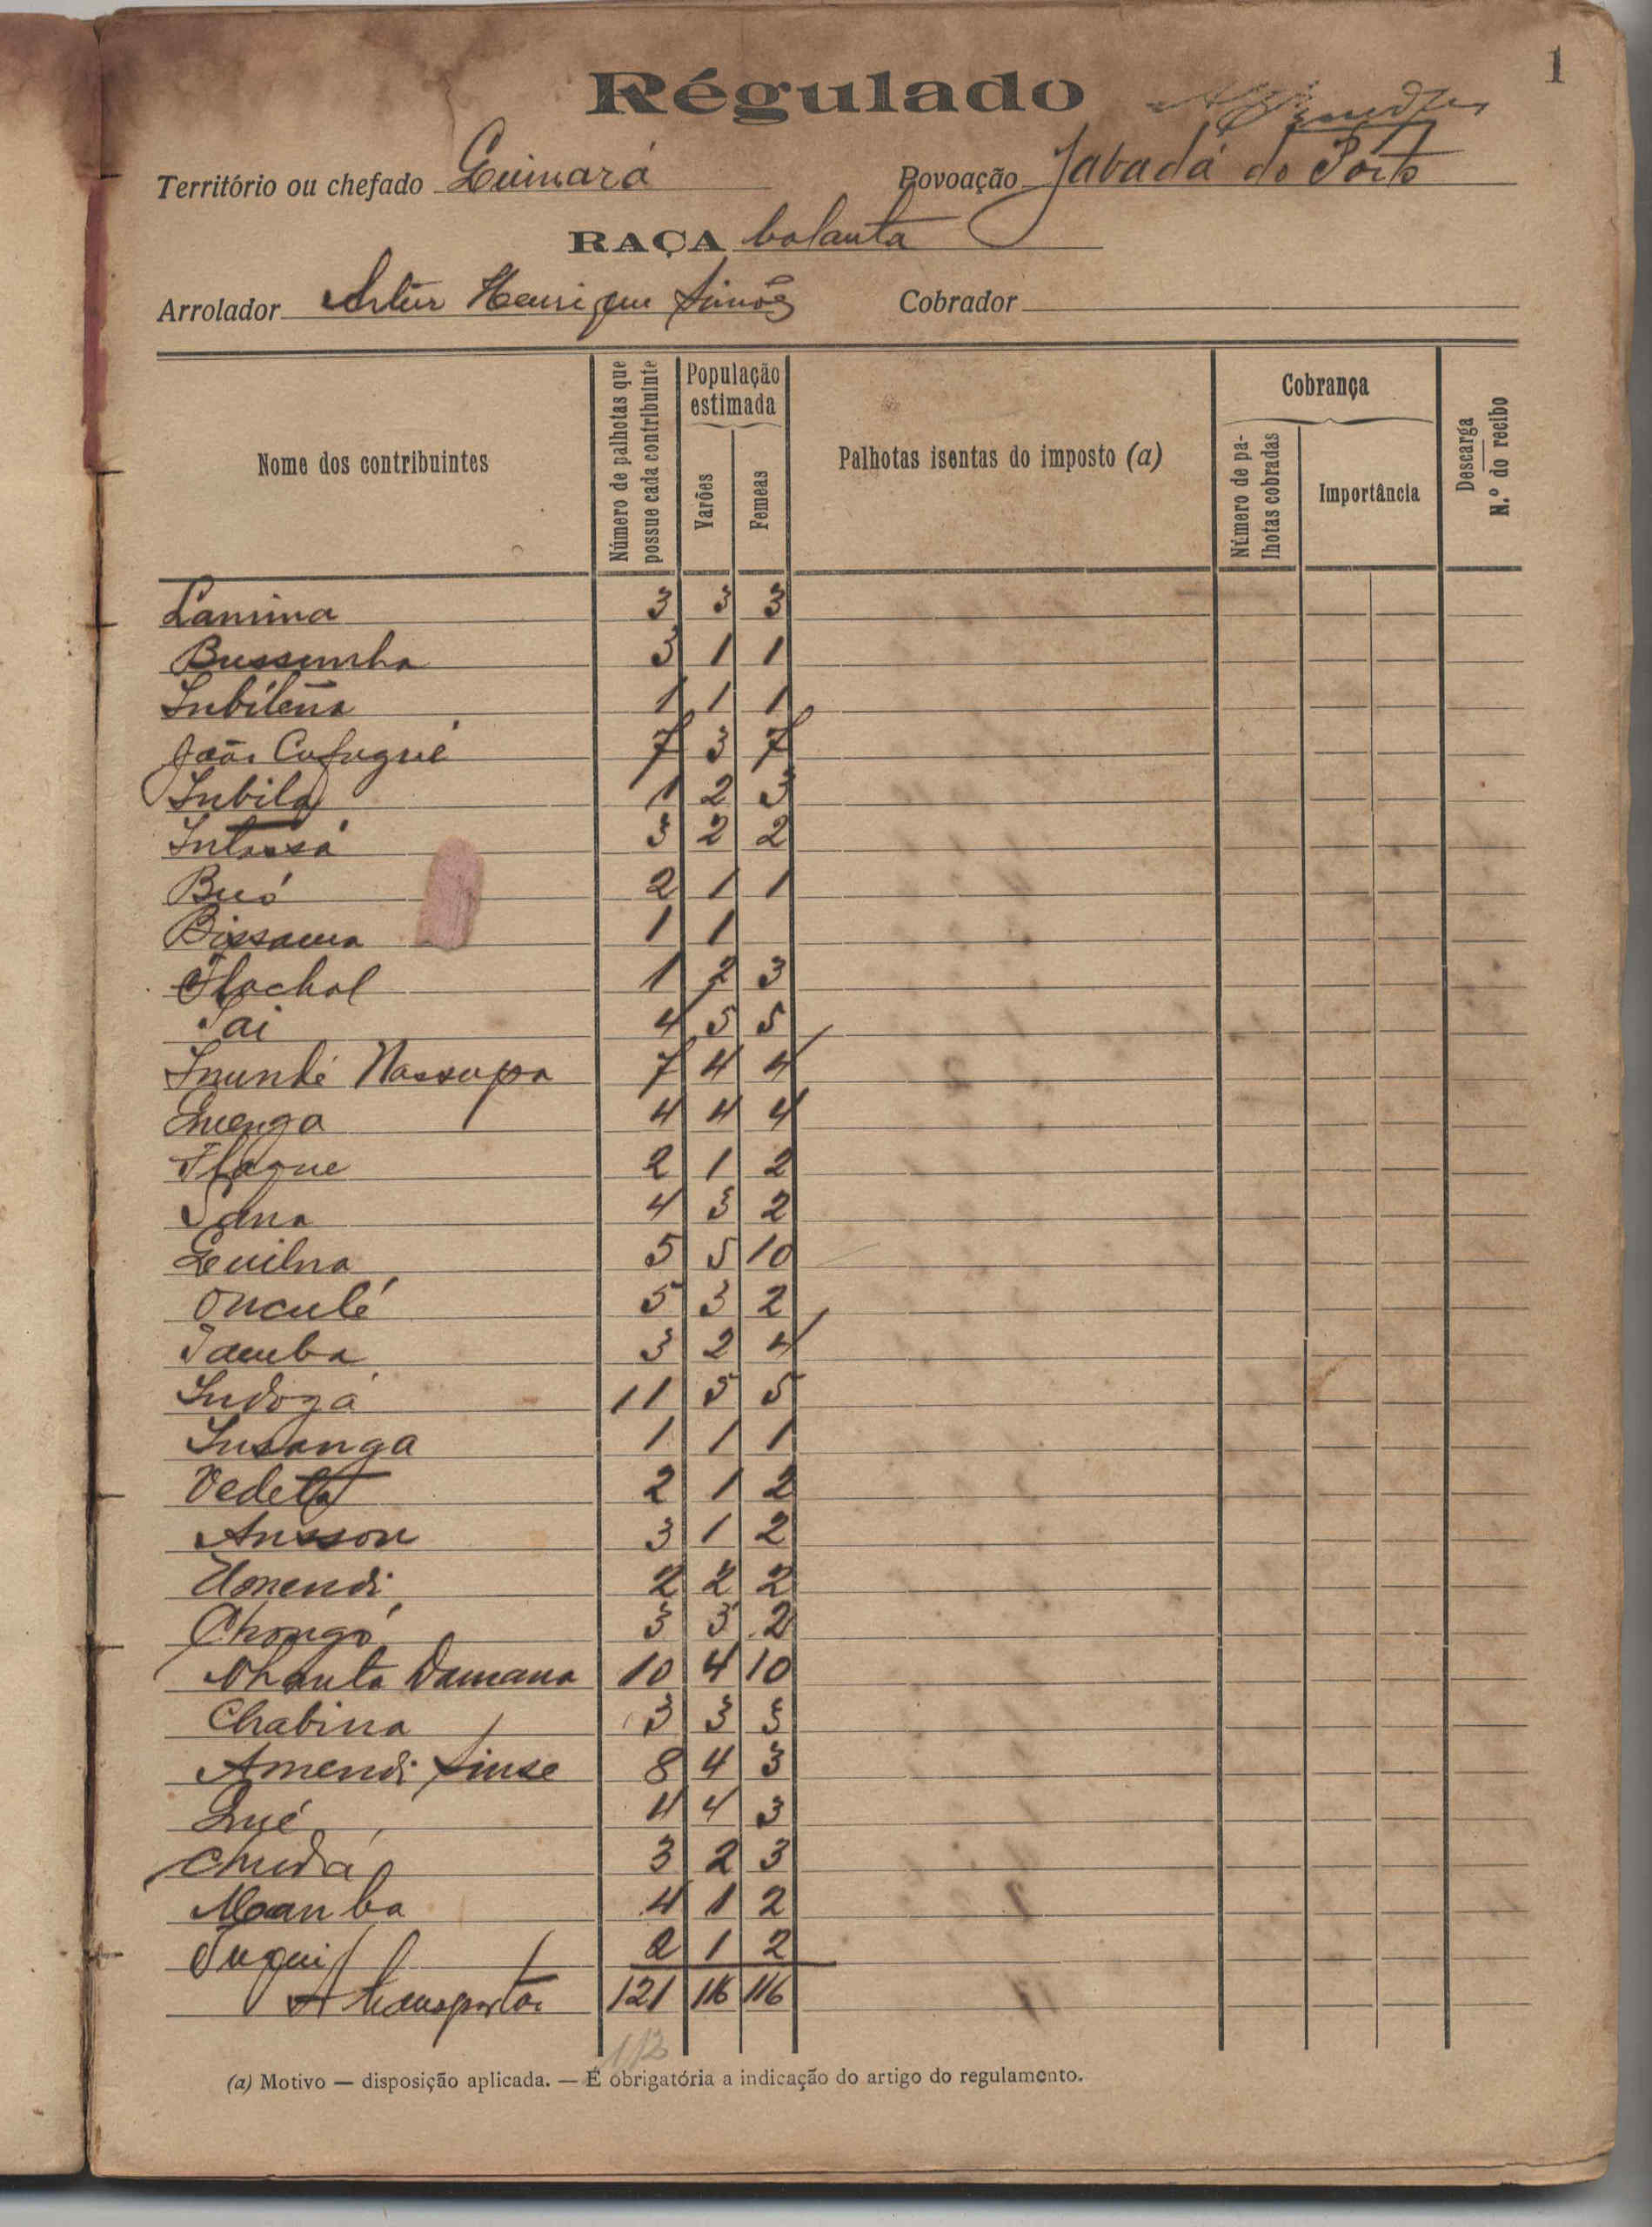 1
Régulado
Território ou chefado Guinará Povoação Jabadá do Porto
RAÇA balanta
Arrolador Artur Henrique Simões Cobrador
Nome dos contribuintes
Número de palhotas que possue cada contribuinte
População estimada
Varões
Femeas
Palhotas isentas do imposto (a)
Cobrança
Número de palhotas cobradas
Importância
Descarga
N.º do recibo
Lamina 3 3 3
Bussumha 3 1 1
1 1 1
João Cufugué 7 3 7
Inbila 1 2 3
Intussá 3 2 2
Buó 2 1 1
Bissauna 1 1
1 2 3
Tai 4 5 5
7 4 4
Quenga 4 4 4
Tlague 2 1 2
Sana 4 3 2
Guilna 5 5 10
Onculé 5 3 2
Tamba 3 2 4
Indozá 11 5 5
Insanga 1 1 1
Vedeta 2 1 2
Ansson 3 1 2
2 2 2
Chongó 3 3 2
Nhanta Damana 10 4 10
Chabina 3 3 3
Amendi Sinse 8 4 3
Qué 4 4 3
Chudá 3 2 3
Moamba 4 1 2
Tuqui 2 1 2
A transportar 121 116 116
(a) Motivo — disposição aplicada. — É obrigatória a indicação do artigo do regulamento.